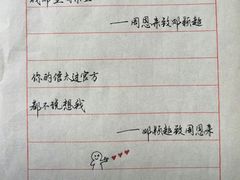 ——周恩来致邓颖超
你的信太过官方
都不说想我
——邓颖超致周恩来